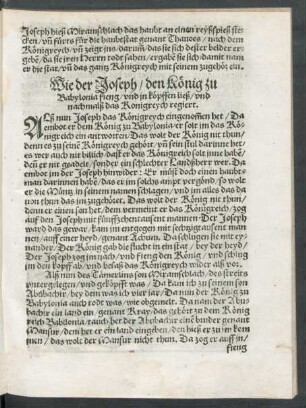 Joseph hieß Miranschlach das haubt an einen reyßspieß ste-
cken/ vñ fürts für die haubtstat genant Thauoes/ nach dem
Königreych/ vñ zeigt jns/ darum̃/ das sie sich dester belder er-
gebẽ/ da sie jren Herrn tode sahen/ ergabẽ sie sich/ damit nam
er die stat/ vñ das gantz Königreych mit seinem zugehör ein.
Wie der Joseph/ den König zu
Babylonia fieng/ vnd jn köpffen ließ/ vnd
nachmalß das Konigreych regiert.
Alß nun Joseph das Königreych eingenomen het/ Da
embot er dem König zu Babylonia/ er solt jm das Kö-
nigreich ein antworten/ Das wolt der König nit thun/
denn es zu seinē Königreych gehört/ vñ sein stul darinnē het/
es wer auch nit billich/ daß er das Königreich solt jnne habē/
deñ er nit gadels/ sonder ein schlechter Landßherr wer. Da
embot jm der Joseph hinwider: Er müst doch einen haubt-
man darinnen habē/ das er im solchs ampt vergünd/ so wolt
er die Müntz in seinem namen schlagen/ vnd jm alles das da
von thun das im zugehöret. Das wolt der König nit thun/
denn er einen son het/ dem vermeint er das Königreich/ zog
auff den Joseph mit fünffzehentausent mannen/ Der Joseph
ward das gewar/ kam jm entgegen mit sechtzigtausent man-
nen/ auff einer heyd/ genant Achum. Da schlugen sie mit ey-
nander. Der König gab die flucht in ein stat/ bey der heyd/
Der Joseph zog jm nach/ vnd fieng den König/ vnd schlug
jm den kopff ab/ vnd besaß das Kongreych wider als vor.
Alß nun das Tämerlins son/ Miranschlach/ des streits
vntergelegen/ vnd geköpfft was/ Da kam ich zu seinem son
Abubachir/ bey dem was ich vier jar/ Da nun der König zu
Babylonia auch todt was/ wie obgemelt. Da nam der Abu-
bachir ein land ein/ genant Kray/ das gehört zu dem König
reich Babilonia/ rauch her der Abubachir einē bruder genant
Mansur/ den het er ein land eingeben/ den hieß er zu jm kom
men/ das wolt der Mansur nicht thun. Da zog er auff jn/
fieng